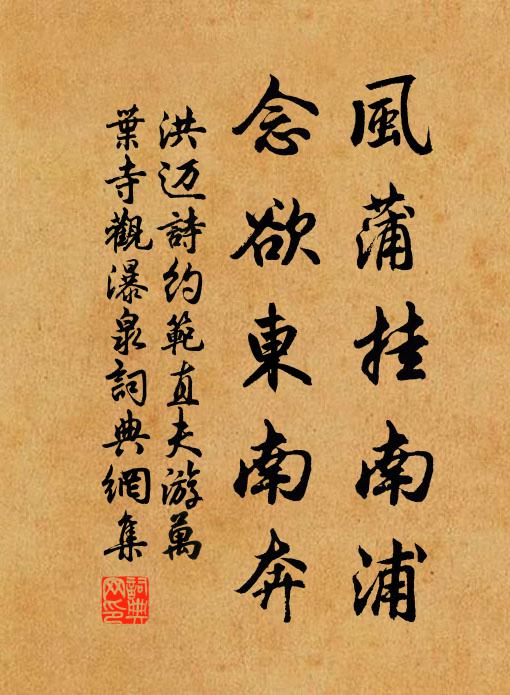 風蒲挂南浦
念欲東南奔
洪迈詩約範直夫游萬
葉寺觀瀑泉詞典網集
詞典
网印